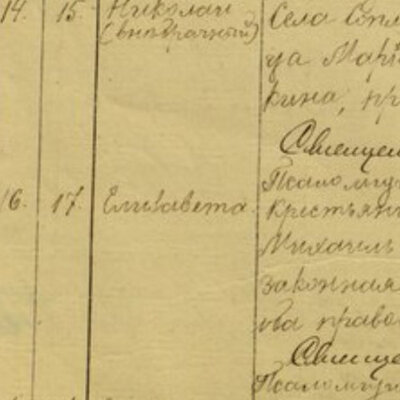 14. 15. Николай Села Сопл
(внебрачный)
да Марі
кина, пр
Священ
Псаломщ
16. 17. Елизавета. крестьян
Михаилъ
законная
ова право
Священ
Псаломщи